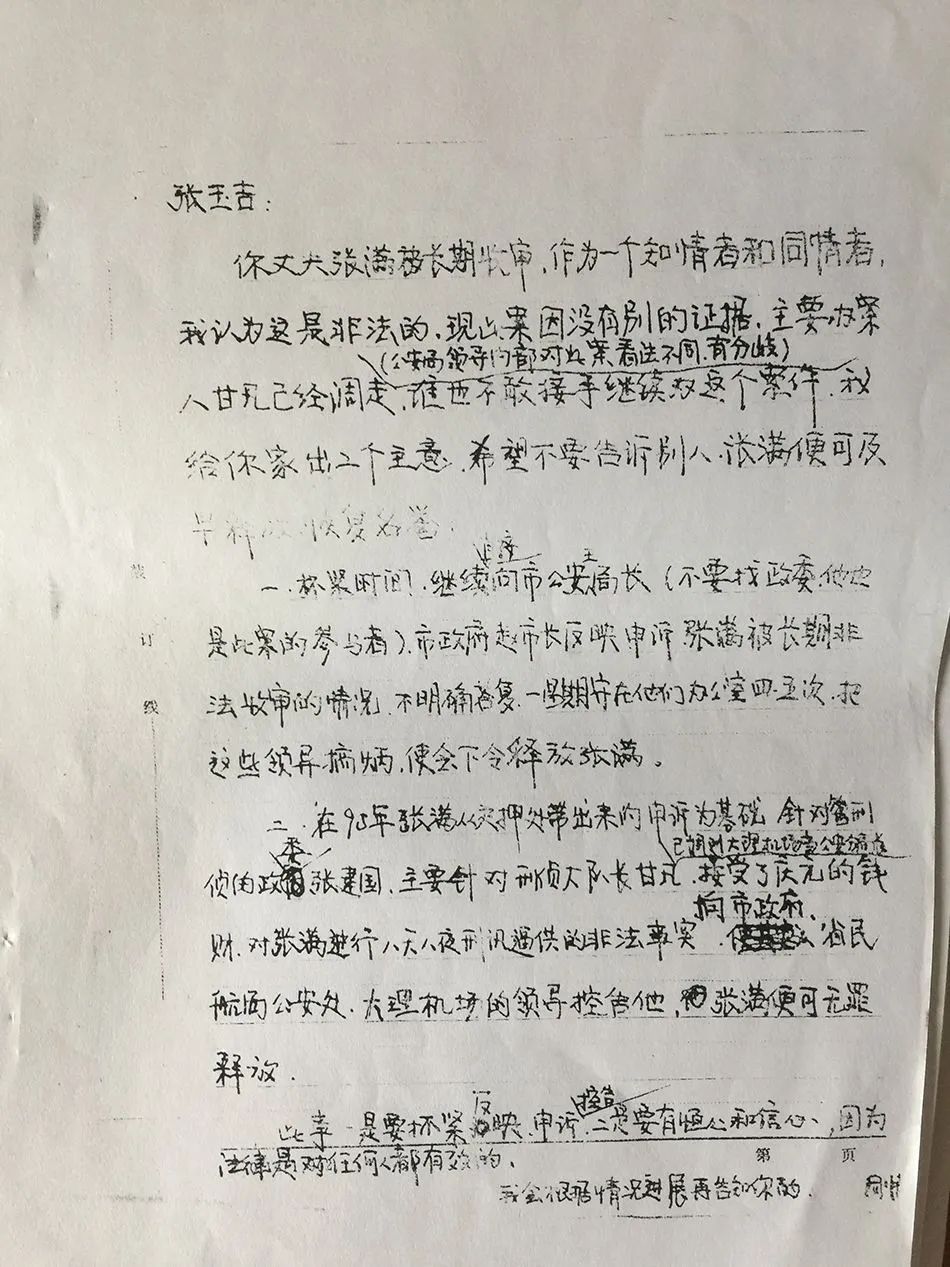 张玉吉：
你丈夫张满被长期收审，作为一个知情者和同情者，
我认为这是非法的，现此案因没有别的证据，主要办案
（公安局领导内部对此案看法不同，有分歧）
人甘凡已经调走，谁也不敢接手继续办这个案件，我
给你家出二个主意，希望不要告诉别人，张满便可及
早释放，恢复名誉。
一、抓紧时间，继续向市公安局长（不要找政委，他也
直接
主
是此案的参与者）、市政府赵市长反映申诉张满被长期非
法收审的情况，不明确答复，一星期守在他们办公室四、五次，把
这些领导搞烦，便会下令释放张满。
二、在95年张满从关押处带出来的申诉为基础，针对管刑
已调到大理机场当公安处长
侦的政委张建国，主要针对刑侦大队长甘凡，接受了庆元的钱
向市政府、
财，对张满进行八天八夜刑讯逼供的非法事实，省民
航局公安处、大理机场的领导控告他，张满便可无罪
释放。
控告
此事一是要抓紧反映、申诉，二是要有恒心和信心，因为
法律是对任何人都有效的。
我会根据情况进展再告知你的。
同情
第 页
装
订
线